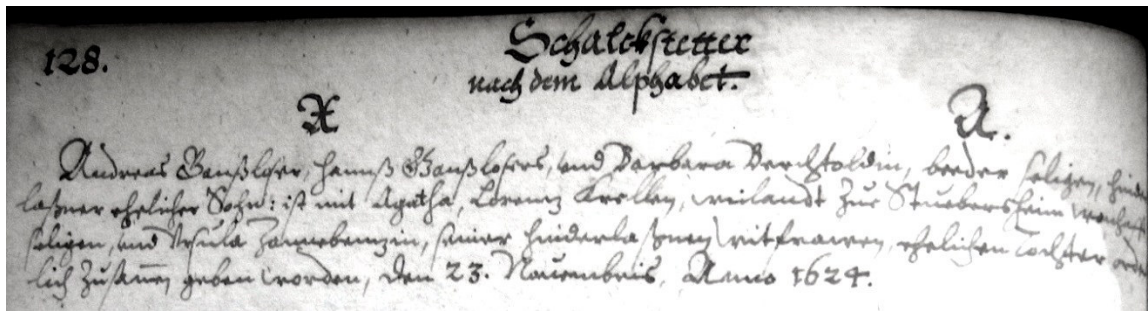 128.
Schalckstetter
nach dem Alphabet.
A A.
Andreas Ganßloser, Hannß Ganßlosers, und Barbara Berchtoldin, beeder seligen, hinder
laßner ehelicher Sohn: ist mit Agatha, Lorentz Krellen, weilandt zue Stuebersheim
seligen, und Ursula seiner hinderlaßnen Witfrawen, ehelichen Tochter
lich zusamen geben worden, den 23. Novembris, Anno 1624.